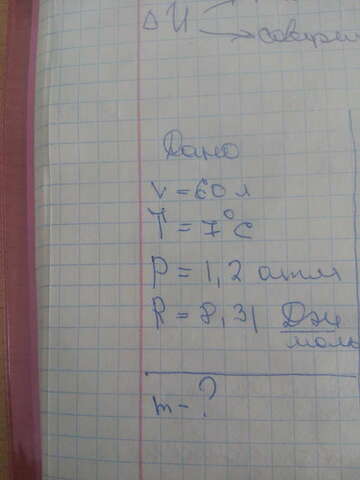 ΔU
совер
Дано
V = 60 л
T = 7°C
P = 1,2 атм
R = 8,31 Дж
моль
m - ?